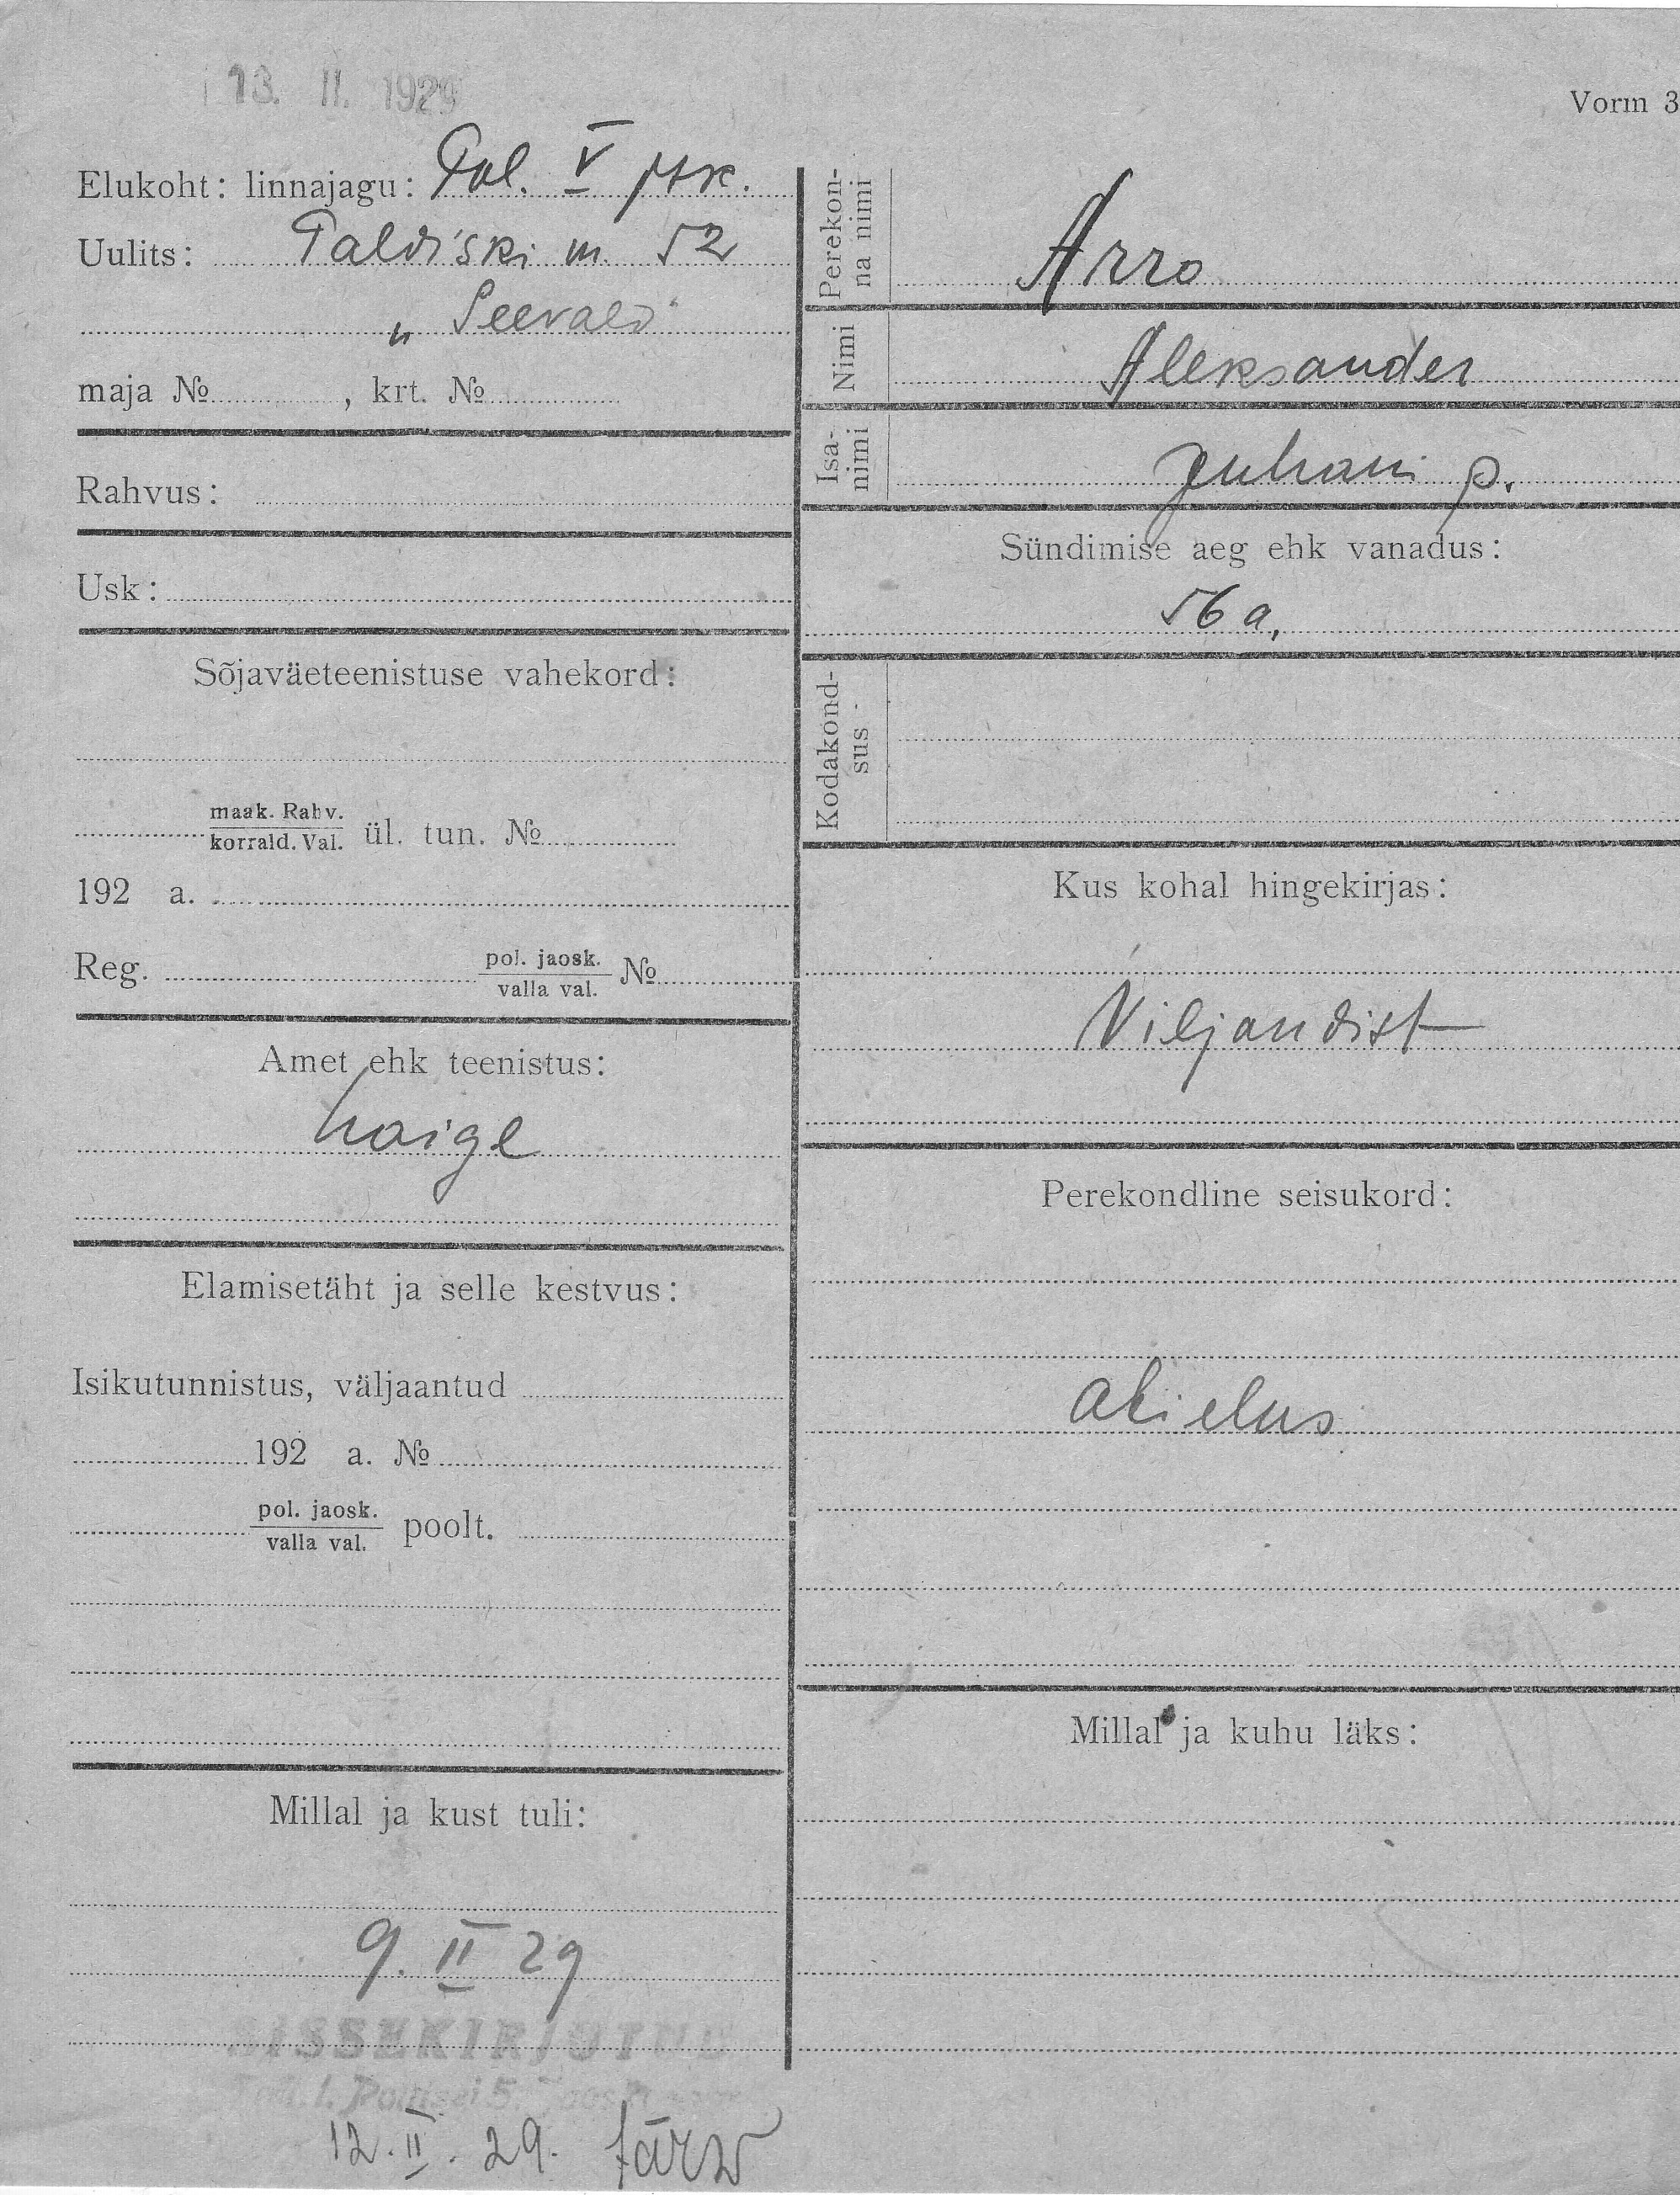 13. II. 1929
Vorm 3
Elukoht: linnajagu: Pol. V jsk.
Uulits: Paldiski m. 52
„ Seevald"
maja № , krt. №
Rahvus:
Usk:
Sõjaväeteenistuse vahekord:
maak. Rahv.
korrald. Val. ül. tun. №
192 a.
Reg. pol. jaosk. №
valla val.
Amet ehk teenistus:
haige
Elamisetäht ja selle kestvus:
Isikutunnistus, väljaantud
192 a. №
pol. jaosk.
valla val. poolt.
Millal ja kust tuli:
9. II 29
SISSEKIRJUTUD
Politsei 5.
12. II. 29. Järw
Perekon-
na nimi
Arro
Nimi
Aleksander
Isa-
nimi
Juhani p.
Sündimise aeg ehk vanadus:
56 a.
Kodakond-
sus -
Kus kohal hingekirjas:
Viljandist
Perekondline seisukord:
abielus
Millal ja kuhu läks: